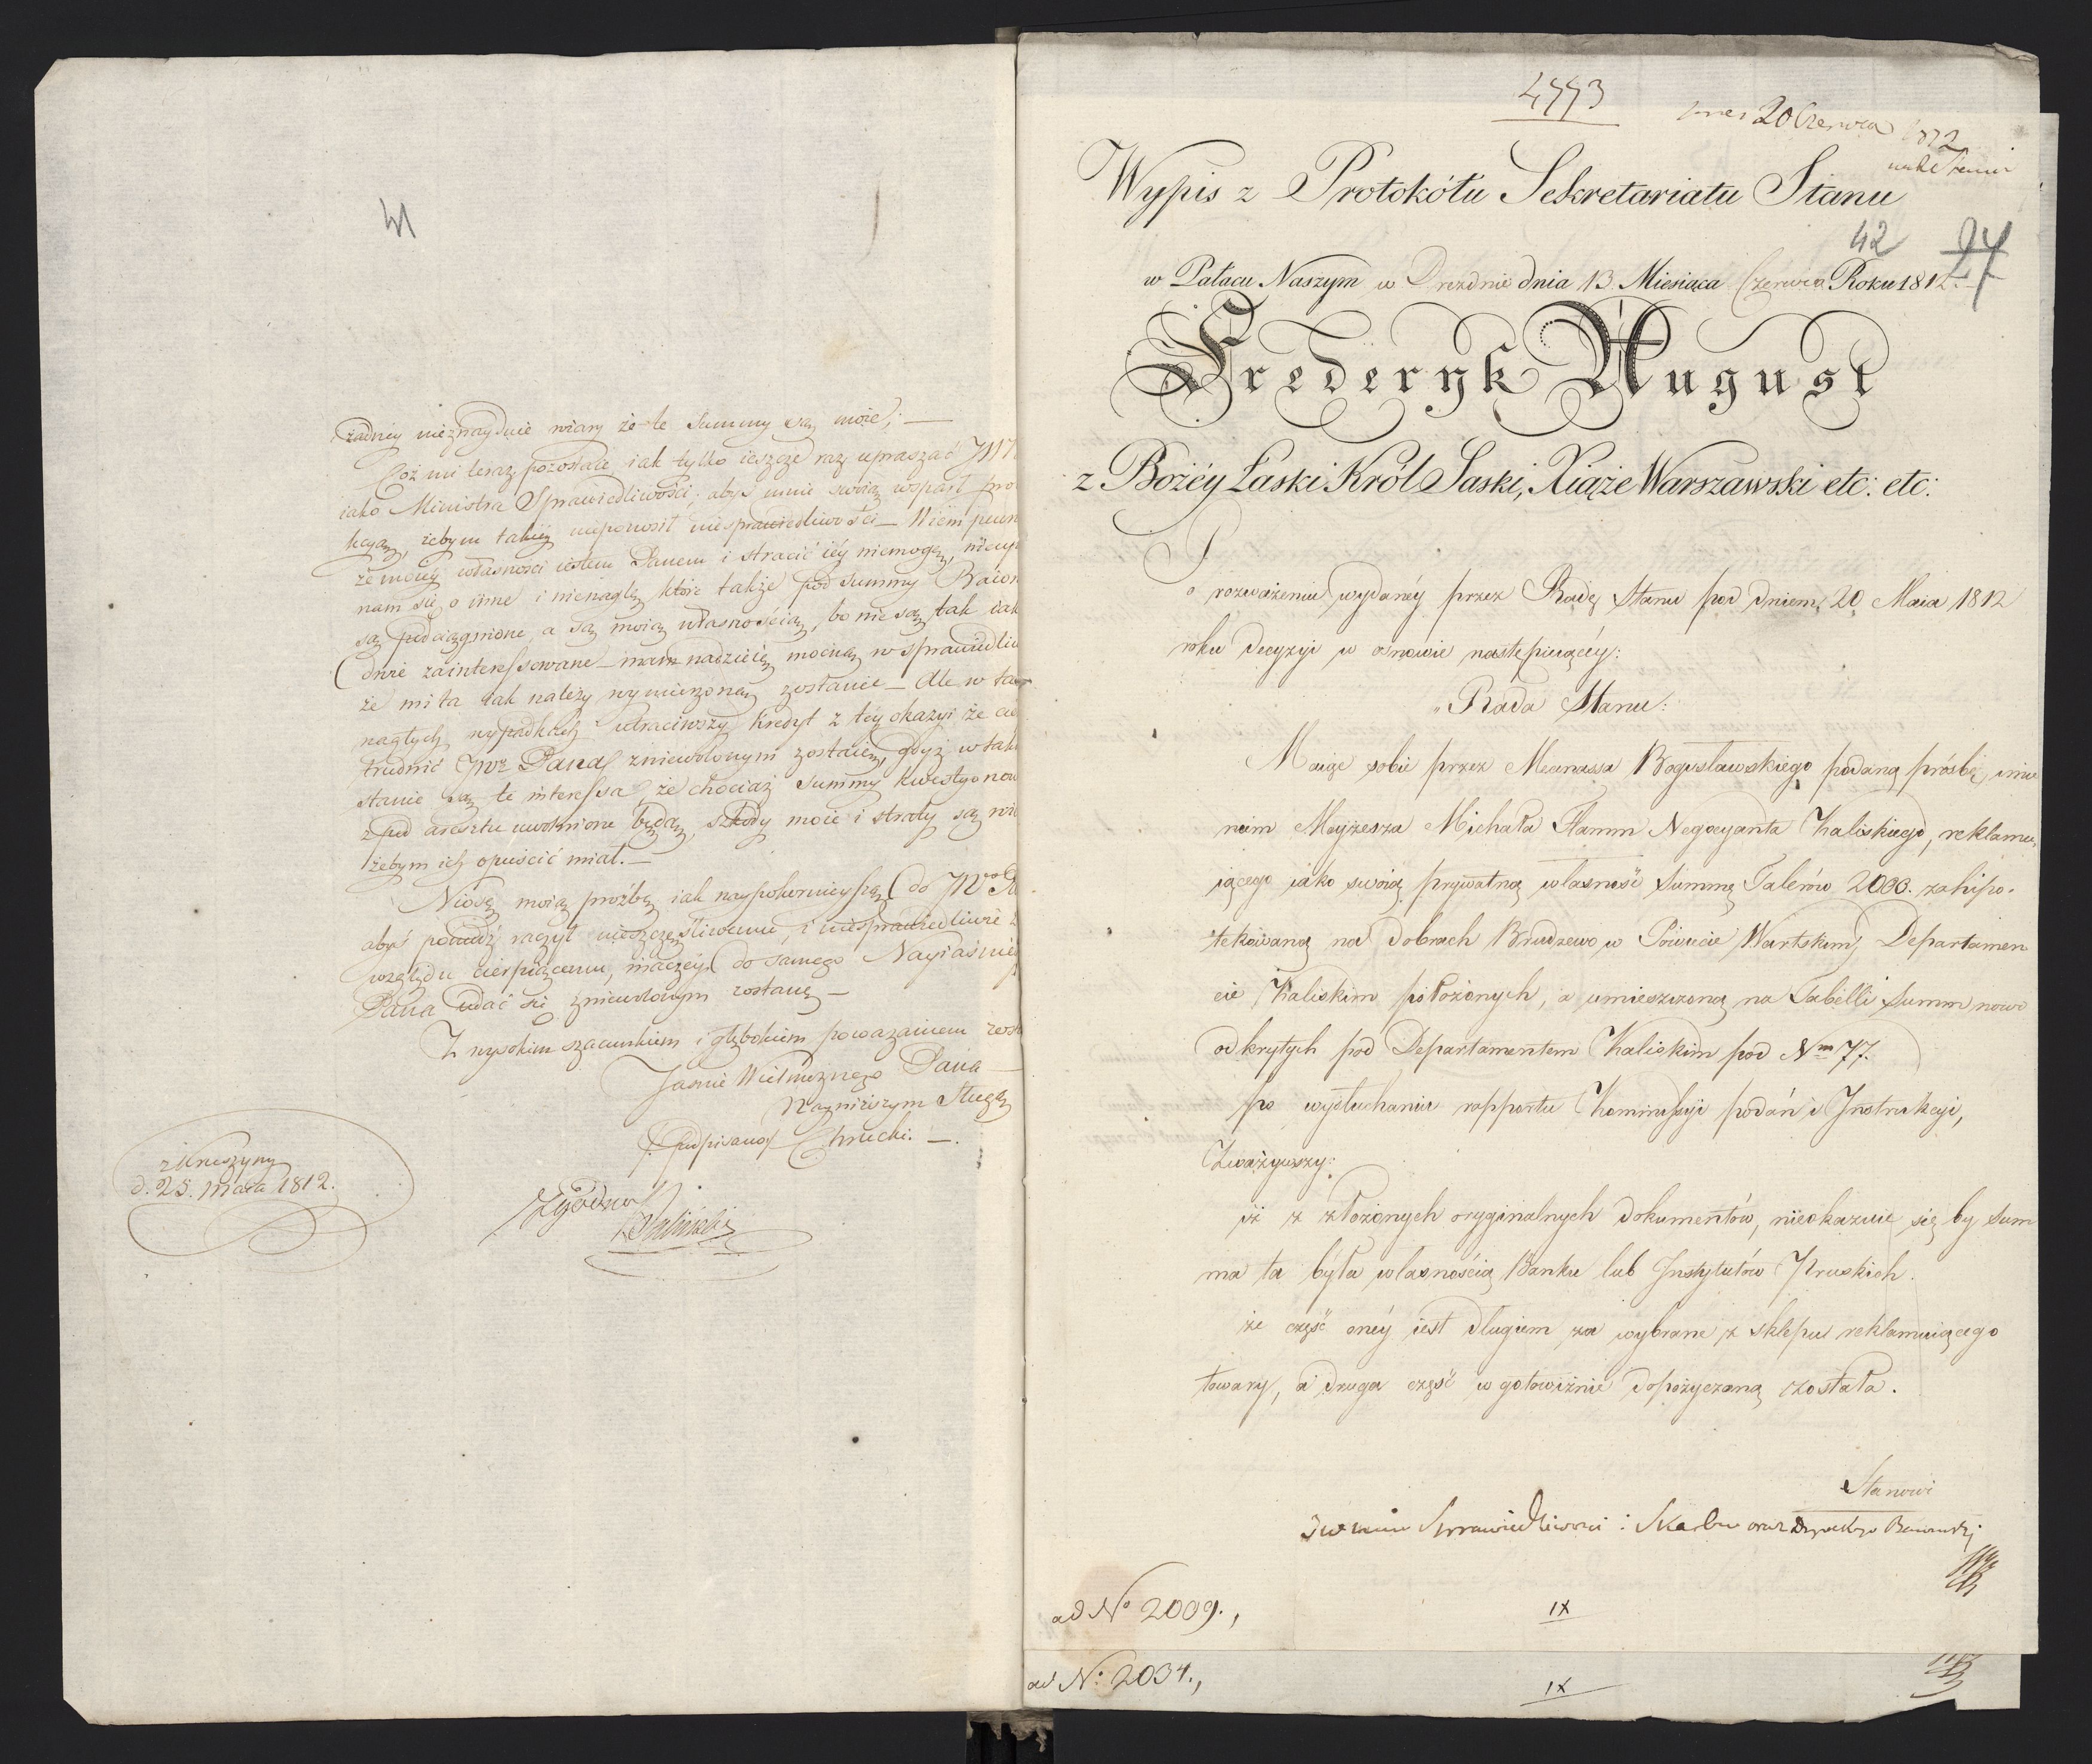 41
żadney nieznayduie wiary że te Summy są moie; —
Coż mi teraz pozostaie, iak tylko ieszcze raz upraszać JW
iako Ministra Sprawiedliwości, abyś mnie swoią wsparł pro
kcyą, żebym takiey nieponosił niesprawiedliwości — Wiem pewn
że moiey własności iestem Panem i stracić iey niemogę,
nam się o inne i nienagłe, które także pod Summy Baion
są podciągnione, a są moią własnością, bo nie są tak iak
dnie zainteressowane — mam nadzieię mocną w sprawiedliw
że mi ta tak należy wymierzoną zostanie — Ale w ta
nagłych wypadkach utraciwszy kredyt z tey okazyi że
trudnić JWo Pana zniewolonym zostaię, gdyż w taki
stanie są te interessa, że chociaż Summy kwestyonow
z pod aresztu uwolnione będą, szkody moie i straty są wi
żebym ich opuścić miał. —
Niosę moią proźbę iak naypokornieyszą do JWo
abyś pomódz raczył nieszczęśliwemu, i niesprawiedliwie
względu cierpiącemu, inaczey do samego Nayiaśnie
Pana udać się zniewolonym zostanę —
Z wysokim szacunkiem i głębokiem poważaniem zost
Jaśnie Wielmożnego Pana —
Nayniższym Sługą
(podpisano) Chrucki. —.
z Kruszyny
d. 25. Maia 1812.
Zgodno
4773
20 Czerwca 1812
Wypis z Protokółu Sekretariatu Stanu
42
w Pałacu Naszym w Dreźnie dnia 13. Miesiąca Czerwca Roku 1812.
Frederyk August
z Bożéy Łaski Król Saski, Xiąże Warszawski etc: etc:
Po rozważeniu wydanéy przez Radę Stanu pod dniem 20 Maia 1812
roku decyzyi w osnowie nastepuiącéy:
„Rada Stanu:
Maiąc sobie przez Mecenassa Bogusławskiego podaną prośbę imie
niem Moyżesza Michała Flamm Negocyanta Kaliskiego, reklamu,
iącego iako swoią prywatną własność Summę Talerów 2000. zahipo-
tekowaną na dobrach Brudzewo w Powiecie Wartskim, Departamen
cie Kaliskim położonych, a umieszczoną na Tabelli Summ nowo
odkrytych pod Departamentem Kaliskim pod Nm 77.
po wysłuchaniu rapportu Kommissyi podań i Instrukcyi,
Zważywszy:
iż z złożonych oryginalnych dokumentów, nieokazuie się by Sum
ma ta była własnością Banku lub Instytutów Pruskich.
że część onéy iest długiem za wybrane z sklepu reklamuiącego
towary, a druga część w gotowiznie dopożyczoną została.
Stanowi
Sprawiedliwości i Skarbu oraz
ad No 2009.,
IX
ad No: 2034.,
IX